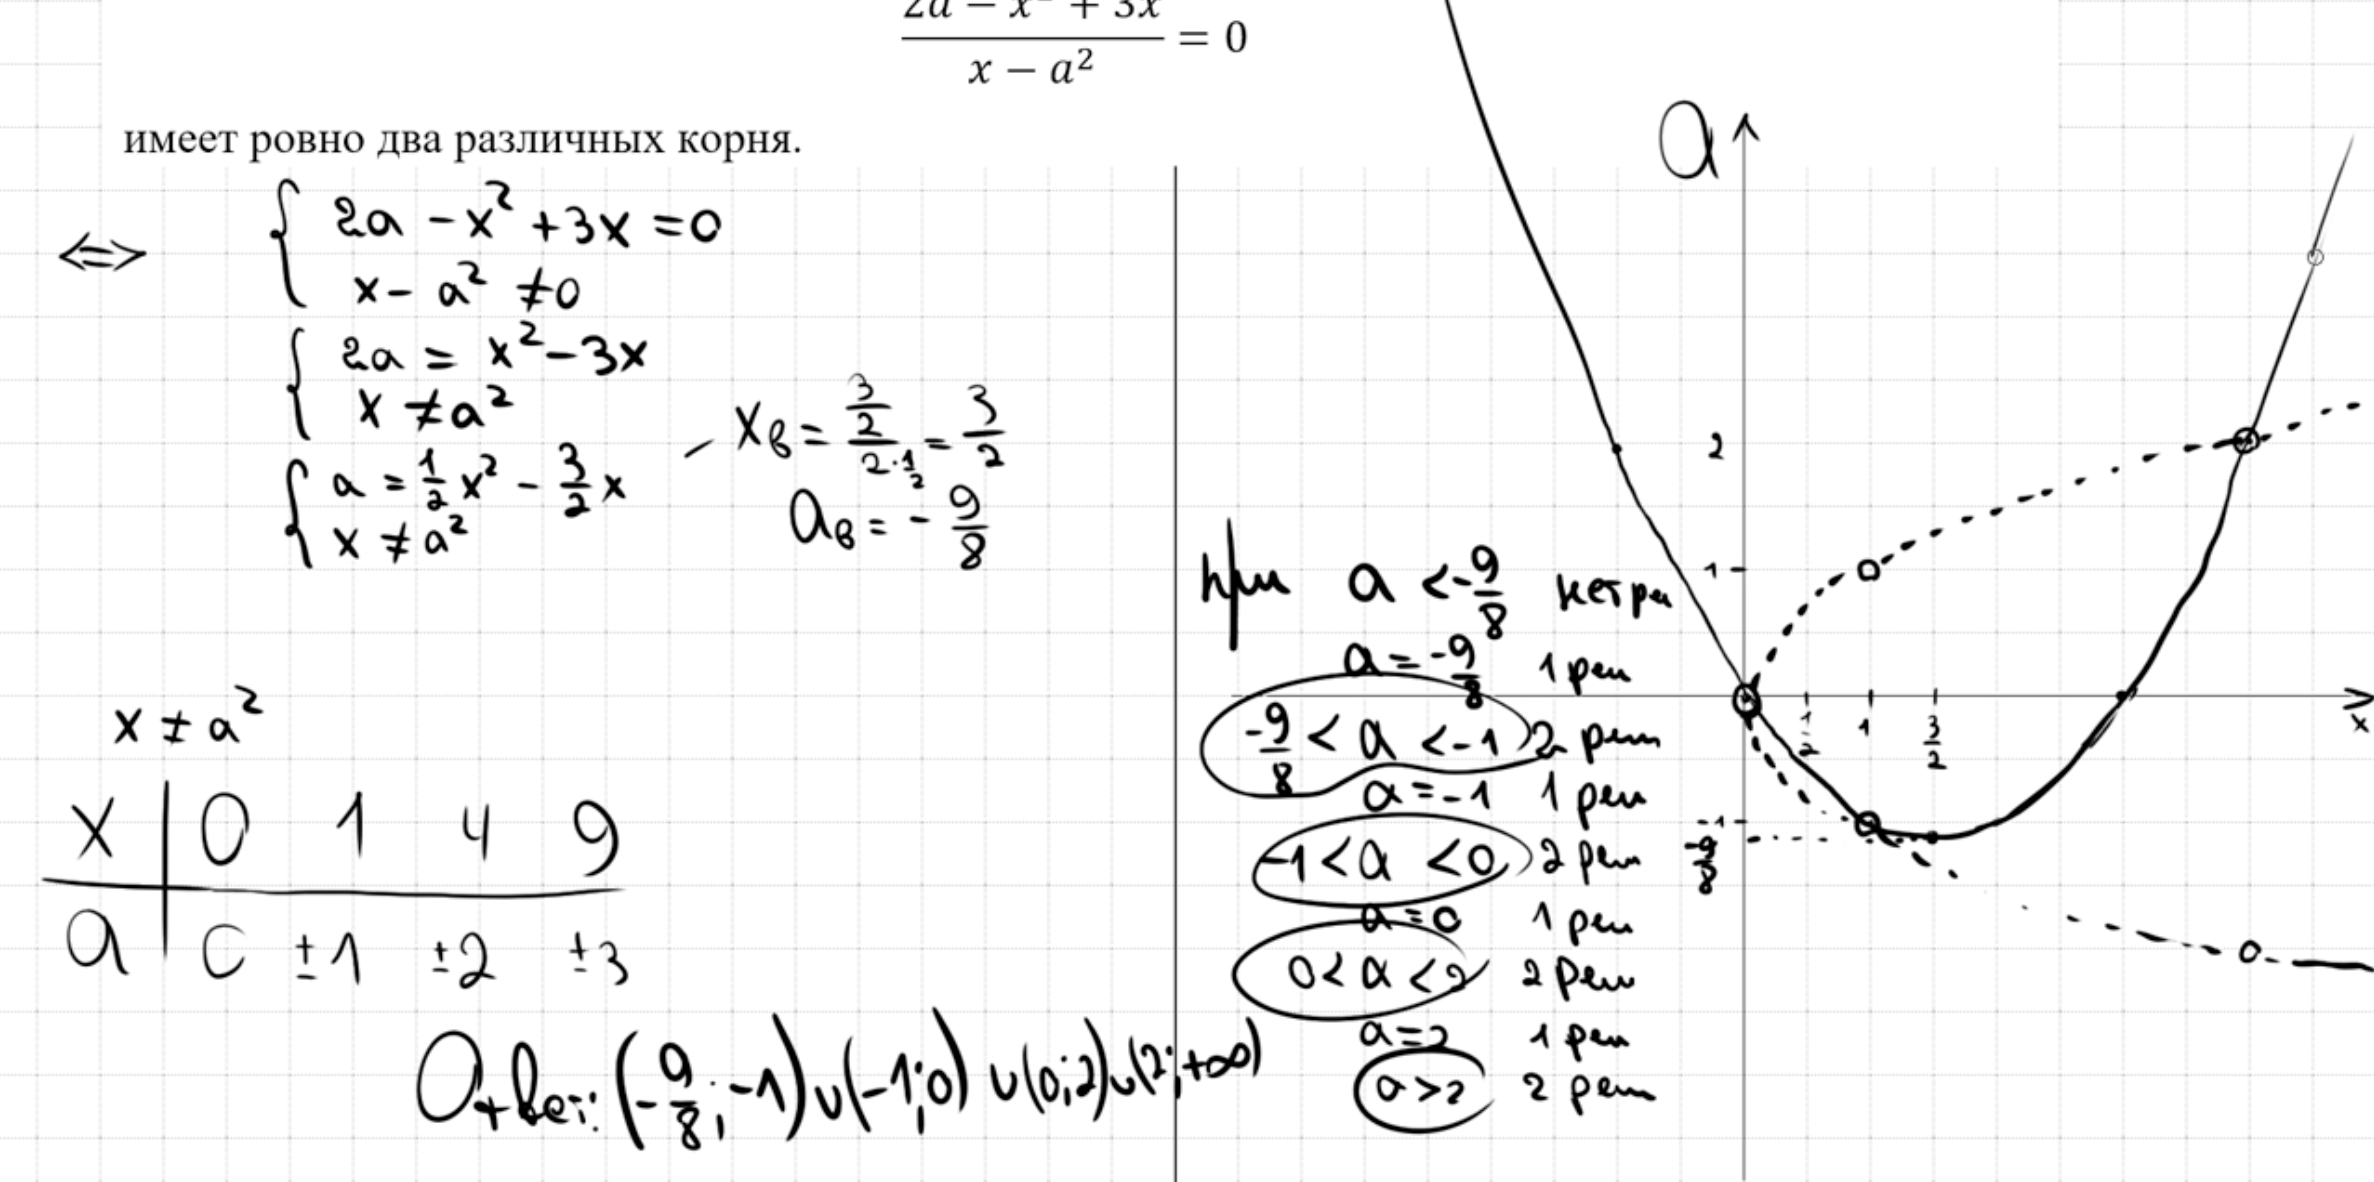 (2a − x² + 3x)/(x − a²) = 0
имеет ровно два различных корня.
⇔ { 2a − x² + 3x = 0
x − a² ≠ 0
{ 2a = x² − 3x
x ≠ a²
{ a = 1/2 x² − 3/2 x
x ≠ a²
− xв = (3/2)/(2·1/2) = 3/2
aв = −9/8
x ≠ a²
x | 0 1 4 9
a | 0 ±1 ±2 ±3
Ответ: (−9/8; −1) ∪ (−1; 0) ∪ (0; 2) ∪ (2; +∞)
при a < −9/8 нет реш
a = −9/8 1 реш
−9/8 < a < −1 2 реш
a = −1 1 реш
−1 < a < 0 2 реш
a = 0 1 реш
0 < a < 2 2 реш
a = 2 1 реш
a > 2 2 реш
a
2
1
1/2 1 3/2
x
−1
−9/8